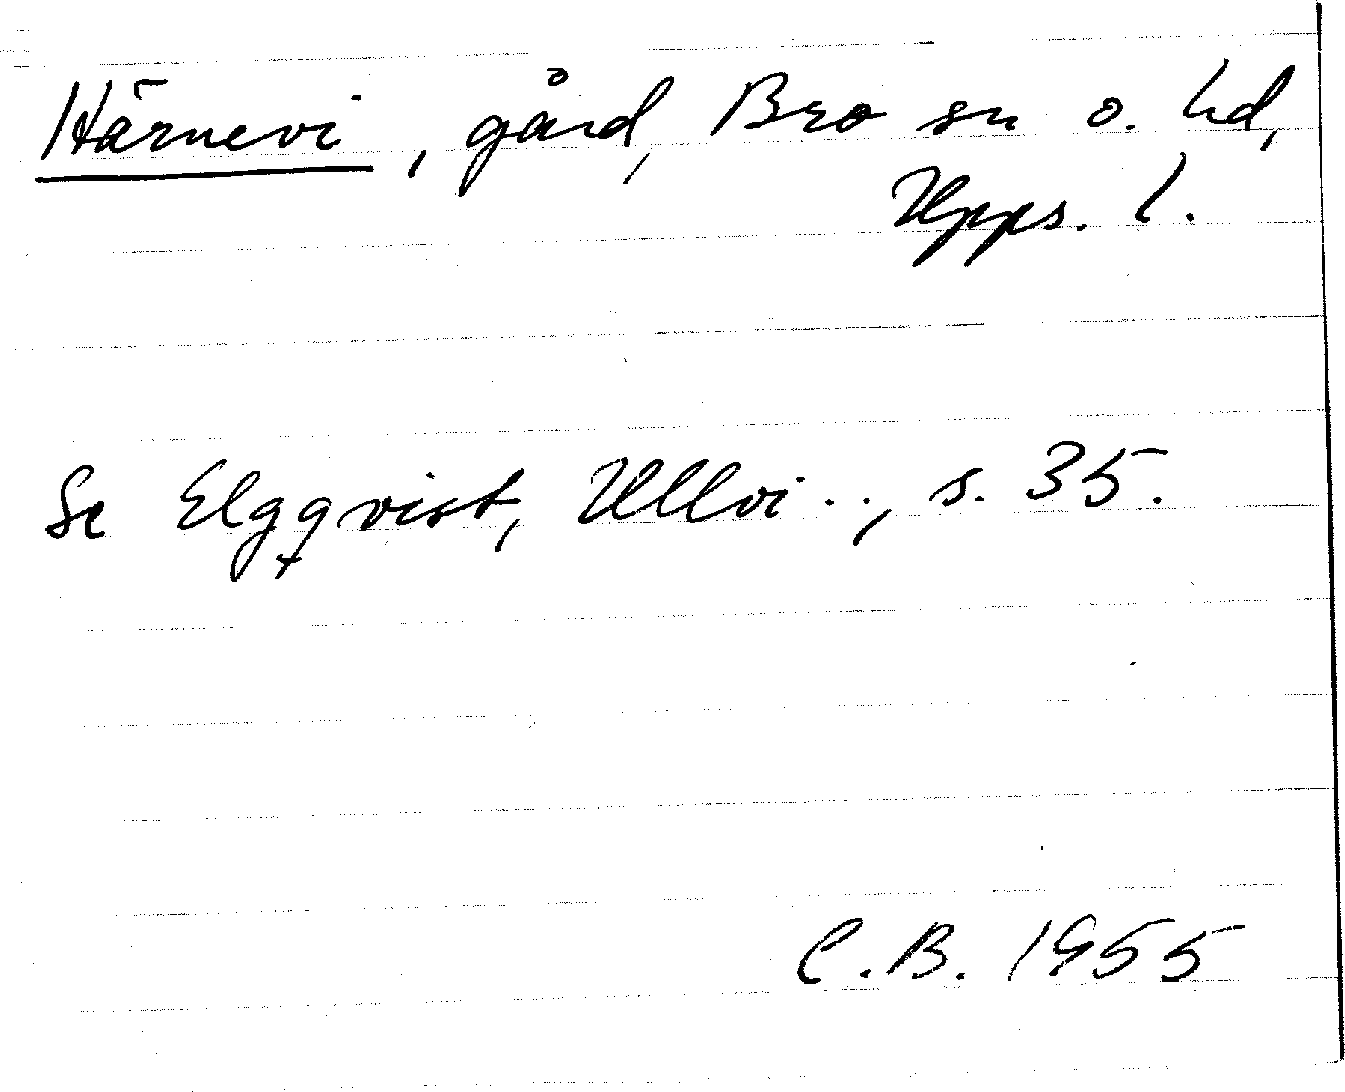 Härnevi, gård, Bro sn o. hd,
Upps. l.
Se Elgqvist, Ullvi.., s. 35.
C.B. 1955